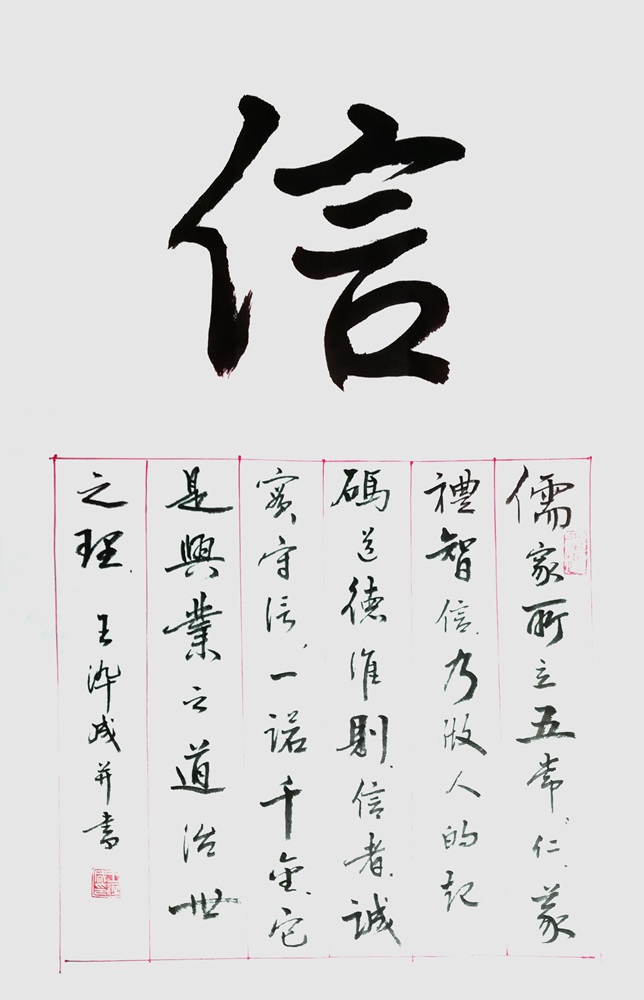 信
儒家所立五常、仁、義
禮智信、乃做人的起
碼道德准則、信者、誠
實守信、一諾千金、它
是興業之道治世
之理、王沛成并書